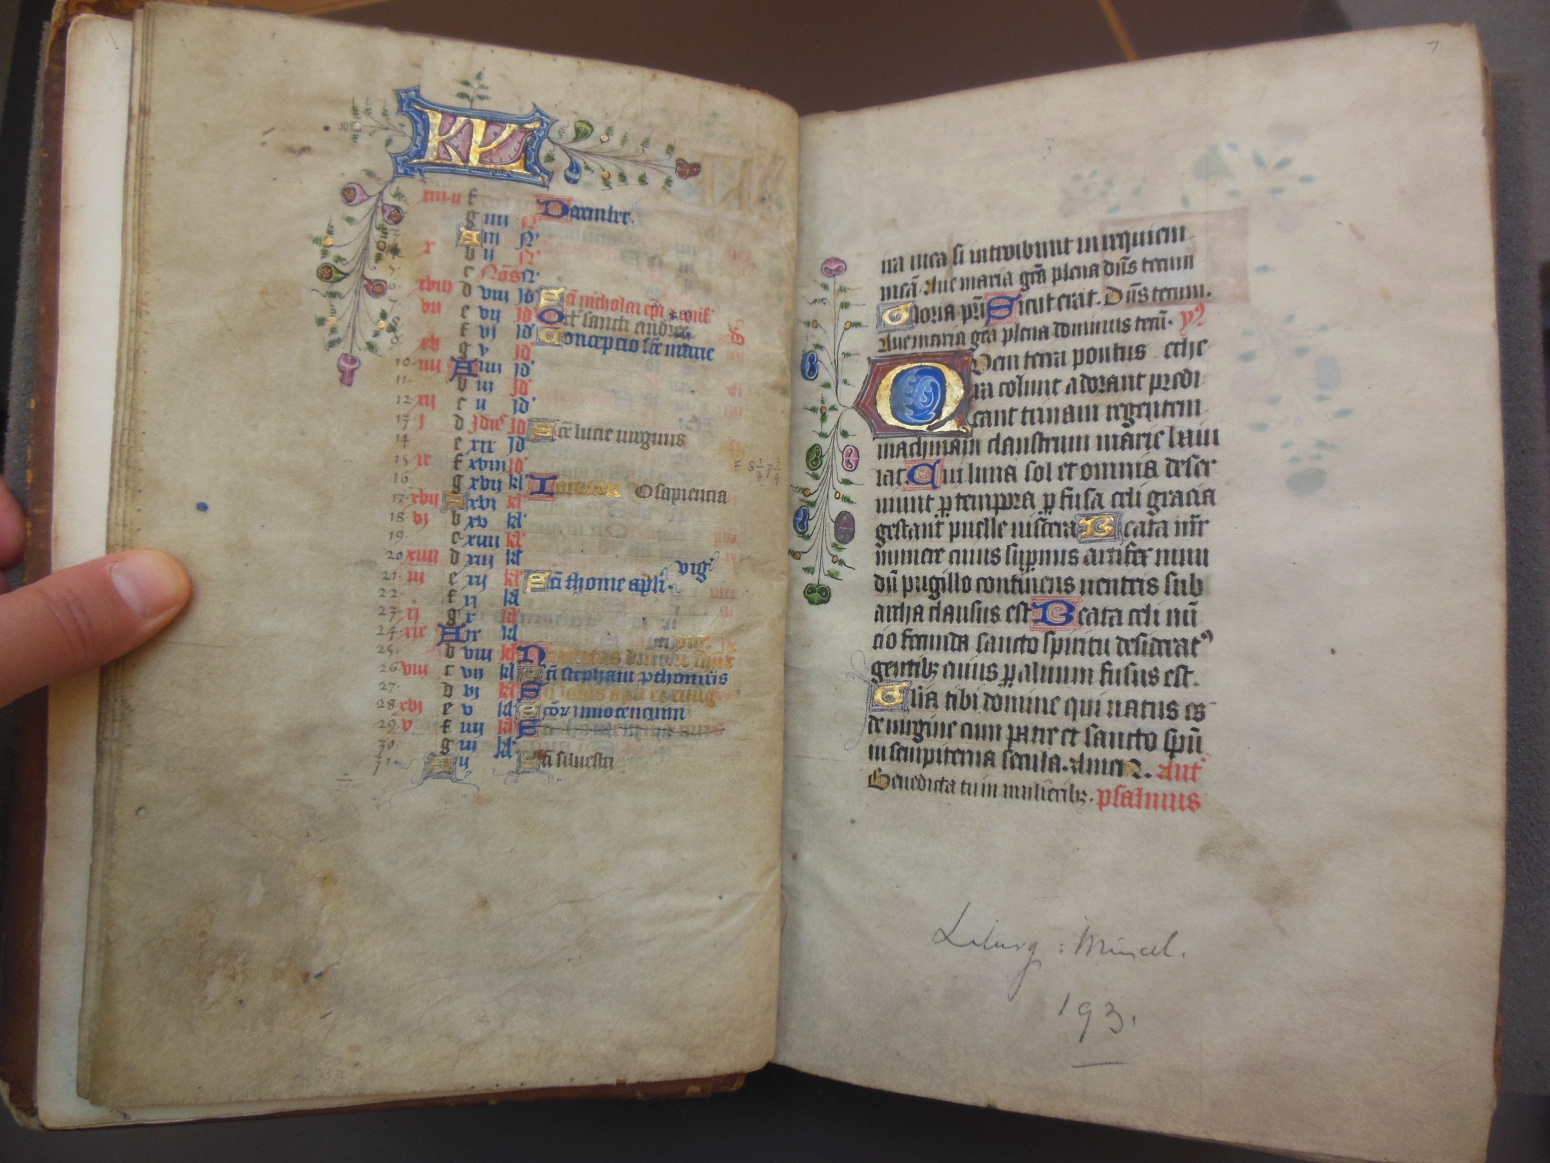 KL
December.
xiii f
g iiii N
A iii N
x b ii N
c Nōs N
xviii d viii id Sci nicholai epi
vii e vii id Oct sancti andree
f vi id Concepcio sce marie
xv g v id
10 iiii A iiii id
11 b iii id
12 xii c ii id
13 i d idus id Sce lucie uirginis
14 e xix kl
15 ix f xviii kl
16 g xvii kl O sapiencia
17 xvii A xvi kl
18 vi b xv kl
19 c xiiii kl
20 xiiii d xiii kl vig
21 iii e xii kl Sci thome apli.
22 f xi kl
23 xi g x kl
24 xix A ix kl
25 b viii kl N
26 viii c vii kl Sci stephani pthomris
27 d vi kl S
28 xvi e v kl Scōr innocencium
29 v f iiii kl
30 g iii kl
31 A ii kl Sci siluestri
7
na mea si introibunt in requiem
meā. Aue maria grā plena dn̄s tecum
Gloria pri Sicut erat. Dn̄s tecum.
Aue maria grā plena dominus tecū. ys
Quem terra pontus ethe
ra colunt adorant predi
cant trinam regentem
machinam claustrum marie baiu
lat Cui luna sol et omnia deser
uiunt p tempora p fusa celi gracia
gestant puelle uiscera Beata mr̄
munere cuius suppnus artifex mun
dū pugillo continens uentris sub
archa clausus est Beata celi nū
cio fecunda sancto spiritu desiderat⁹
gentibz cuius p aluum fusus est.
Glia tibi domine qui natus es
de uirgine cum patre et sancto spū
in sempiterna secula. Amen. Ant
Benedicta tu in mulieribz. psalmus
Liturg: Miscel.
193.